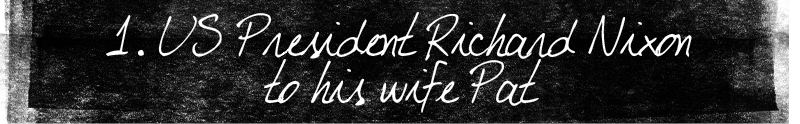 1. US President Richard Nixon
to his wife Pat